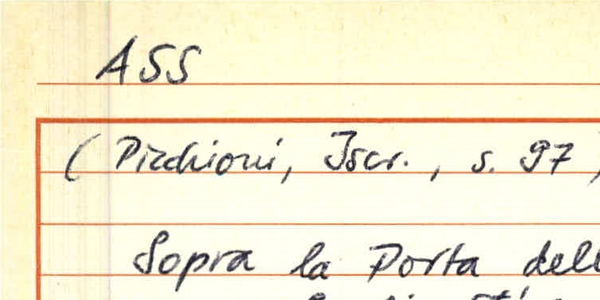 ASS
(Picchioni, Iscr., s. 97)
Sopra la Porta dell